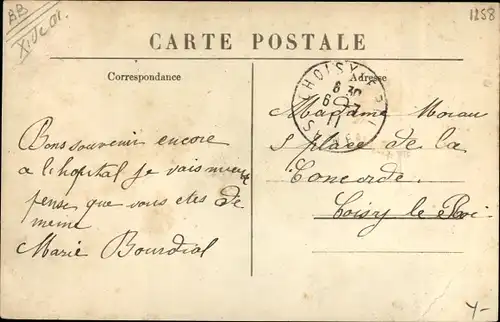 BB
XI.02.01.
1258
CARTE POSTALE
Correspondance
Adresse
CHOISY
6 30
6 - 7
11
Bons souvenir encore
a l'hopital je vais mieux
pense que vous etes de
meme
Marie Bourdiol
Madame Morau
5 place de la
Concorde.
Coisy le Roi
4-